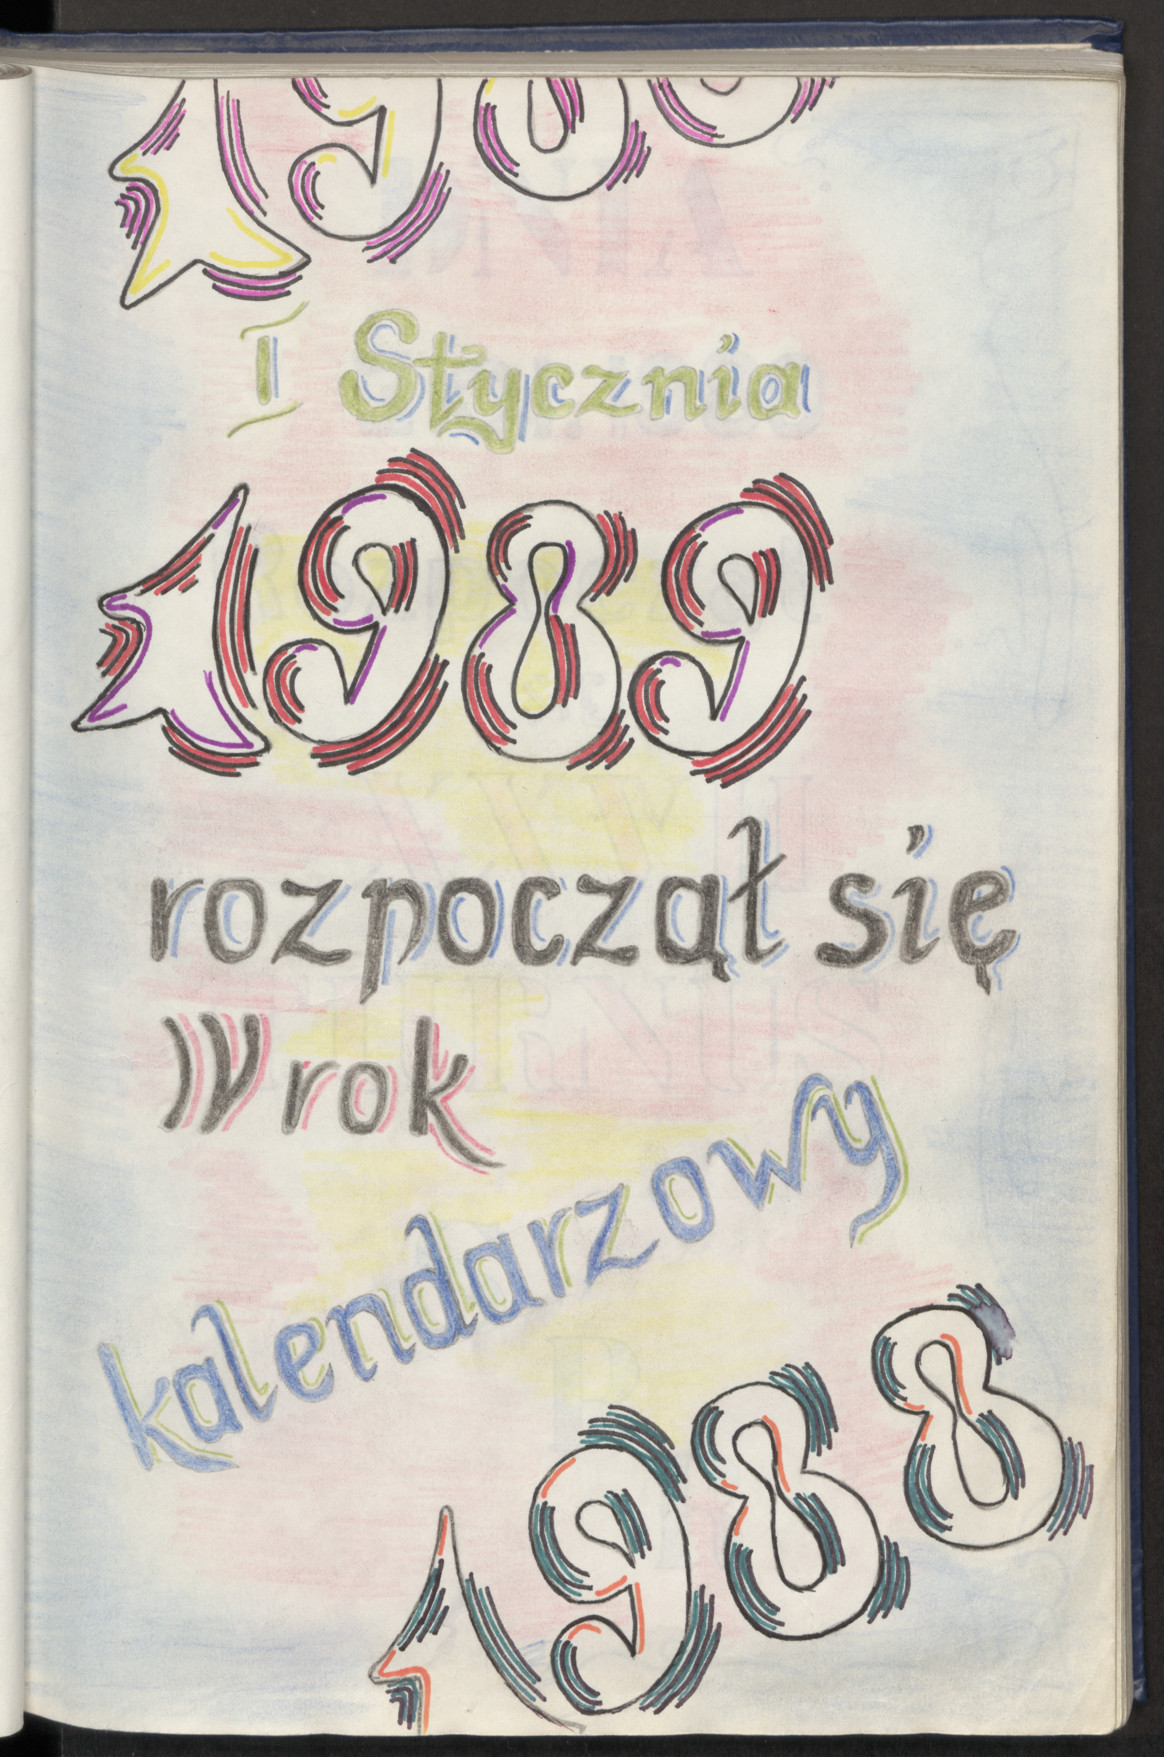 I Stycznia
1989
rozpoczął się
IV rok
kalendarzowy
1988